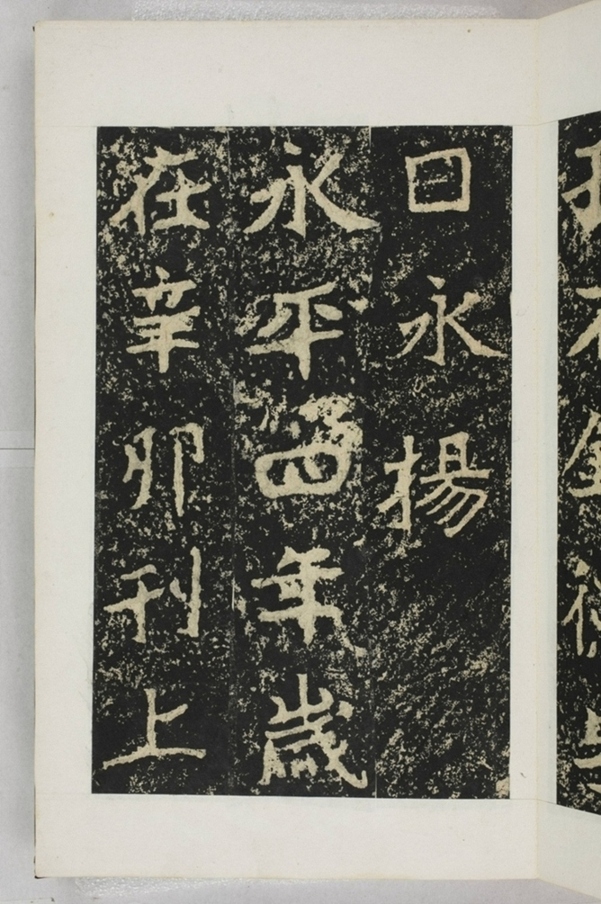 日永揚
永平四年歲
在辛卯刊上